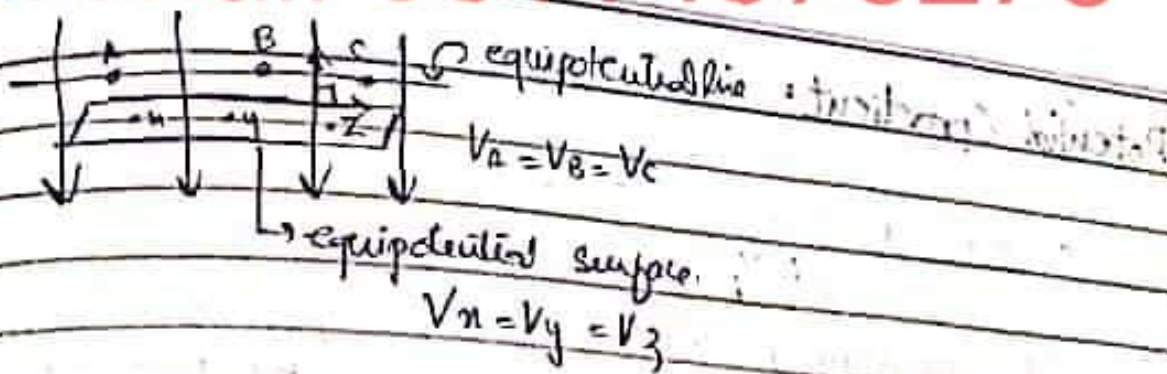 A B C equipotential line
x y z
VA = VB = VC
equipotential surface.
Vx = Vy = Vz